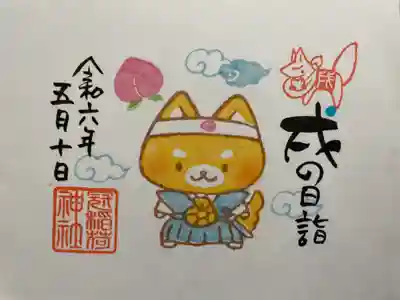 戌の日詣
令和六年
五月十日
冠稲荷
神社
戌